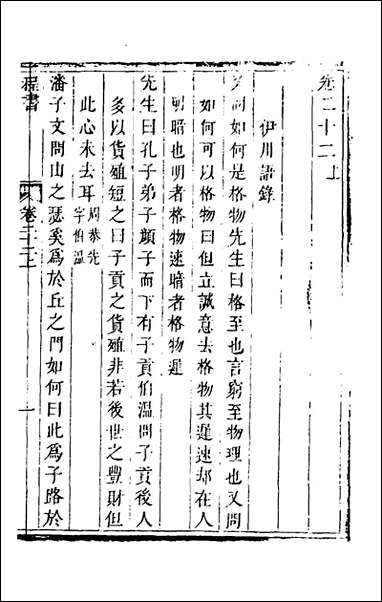 卷二十二上
伊川語錄
問如何是格物先生曰格至也言窮至物理也又問
如何可以格物曰但立誠意去格物其遲速却在人
明暗也明者格物速暗者格物遲
先生曰孔子弟子顏子而下有子貢伯溫問子貢後人
多以貨殖短之曰子貢之貨殖非若後世之豐財但
此心未去耳周恭先字伯溫
潘子文問由之瑟奚爲於丘之門如何曰此爲子路於
程書 卷二十二上 一